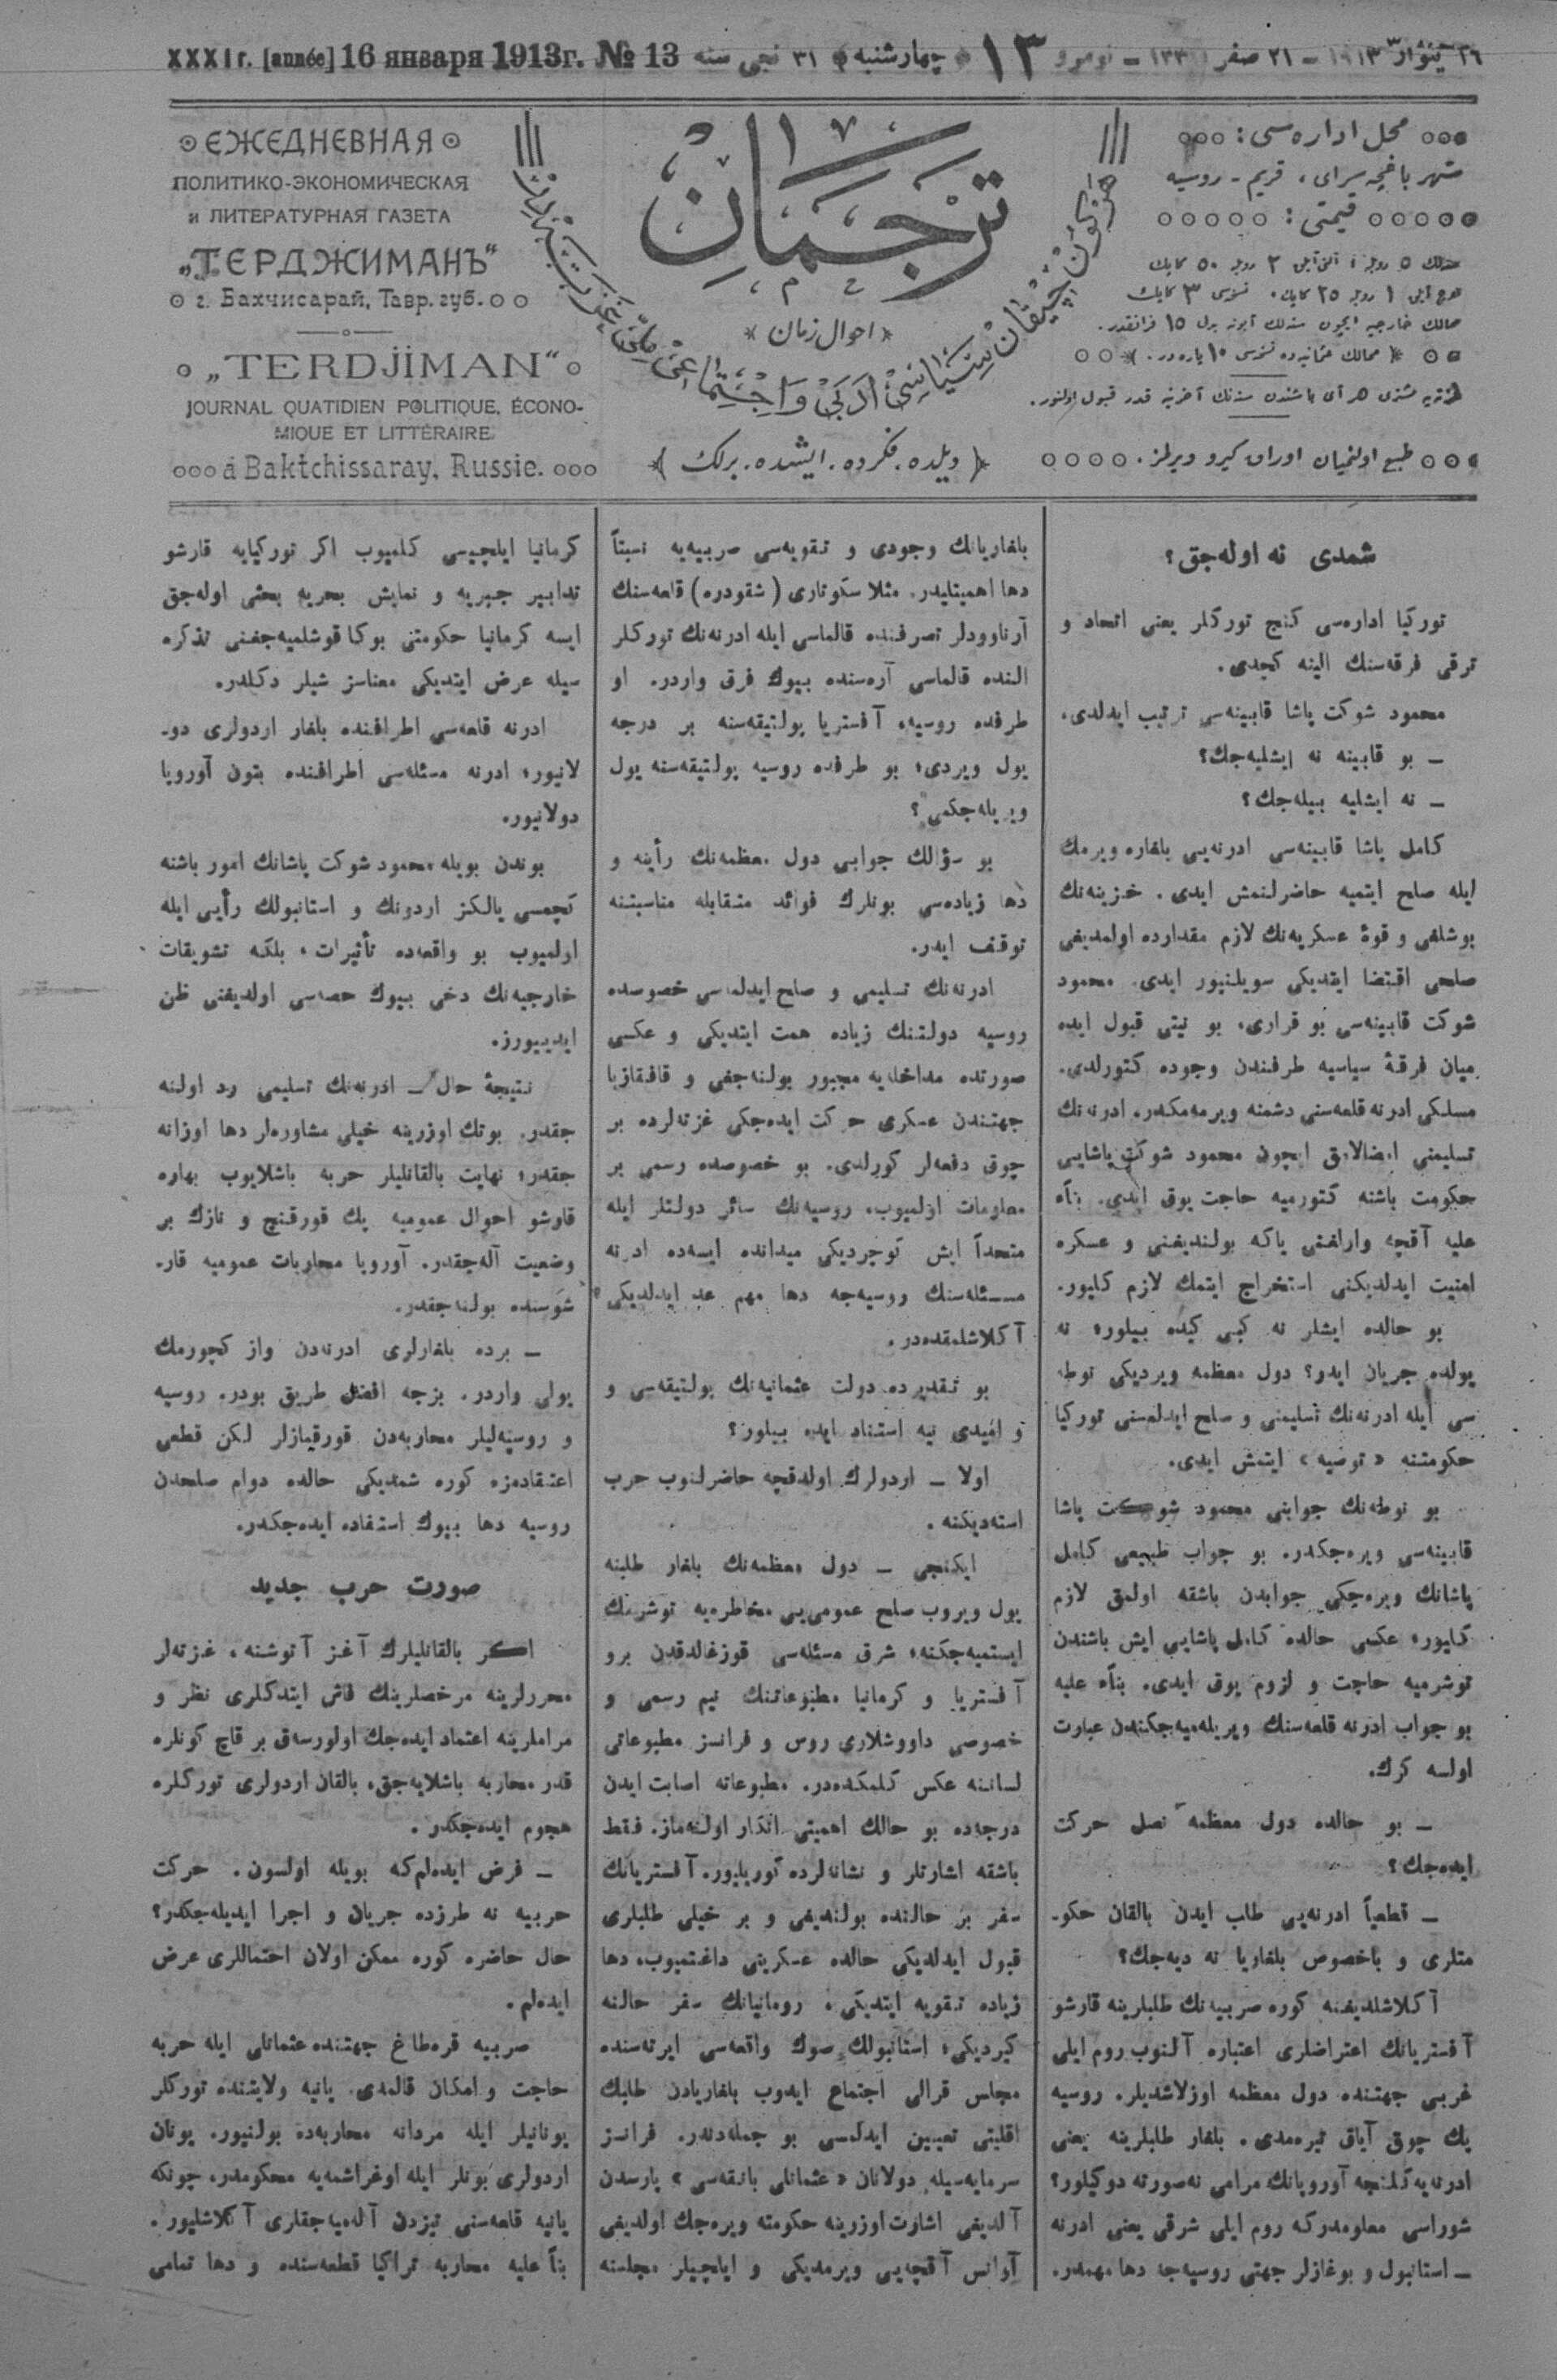 XXXI г. [année] 16 января 1913 г. № 13 ٣١ نجی سنه ﴿ چهارشنبه ﴾ ١٣ نومرو – ٢١ صفر – ١٩١٣
ЕЖЕДНЕВНАЯ
ПОЛИТИКО-ЭКОНОМИЧЕСКАЯ
и ЛИТЕРАТУРНАЯ ГАЗЕТА
„ТЕРДЖИМАНЪ“
г. Бахчисарай, Тавр. губ.
„TERDJIMAN“
JOURNAL QUATIDIEN POLITIQUE, ÉCONO-
MIQUE ET LITTÉRAIRE
à Baktchissaray, Russie.
ترجمان
﴿ احوال زمان ﴾
هر كون چیقان سیاسی ادبی و اجتماعی ملی غزته‌در
﴿ دیلده. فكرده. ایشده. برلك ﴾
محل اداره‌سی :
شهر باغچه سرای ، قریم ـ روسیه
قیمتی :
سنه‌لك ٥ روبله ، آلتی آیلق ٣ روبله ٥٠ كاپك
اوچ آیلق ١ روبله ٢٥ كاپك. نسخه‌سی ٣ كاپك
ممالك خارجیه ایچون سنه‌لك آبونه بدل ١٥ فرانقدر.
﴿ ممالك عثمانیه‌ده نسخه‌سی ١٠ پاره‌در. ﴾
غزتیه مشتری هر آی باشندن سنه‌نك آخرینه قدر قبول اولنور.
طبع اولنمیان اوراق كیرو ویرلمز.
شمدی نه اوله‌جق ؟
توركیا اداره‌سی كنج توركلر یعنی اتحاد و
ترقی فرقه‌سنك الینه كچدی.
محمود شوكت پاشا قابینه‌سی ترتیب ایدلدی.
ـ بو قابینه نه ایشلیه‌جك ؟
ـ نه ایشلیه بیله‌جك ؟
كامل پاشا قابینه‌سی ادرنه‌یی بلغاره ویرمك
ایله صلح ایتمیه حاضرلنمش ایدی. خزینه‌نك
بوشلغی و قوۀ عسكریه‌نك لازم مقدارده اولمدیغی
صلحی اقتضا ایتدیكی سویلنیور ایدی. محمود
شوكت قابینه‌سی بو قراری، بو نیتی قبول ایده
میان فرقۀ سیاسیه طرفندن وجوده كتورلدی.
مسلكی ادرنه قلعه‌سنی دشمنه ویرمه‌مكدر. ادرنه‌نك
تسلیمنی امضالامق ایچون محمود شوكت پاشایی
حكومت باشنه كتورمیه حاجت یوق ایدی. بناءً
علیه آقچه وارلغنی یاكه بولندیغنی و عسكره
امنیت ایدلدیكنی استخراج ایتمك لازم كلیور.
بو حالده ایشلر نه كبی كیده بیلور؛ نه
یولده جریان ایدر؟ دول معظمه ویردیكی نوطه
سی ایله ادرنه‌نك تسلیمنی و صلح ایدلمسنی توركیا
حكومتنه «توصیه» ایتمش ایدی.
بو نوطه‌نك جوابنی محمود شوكت پاشا
قابینه‌سی ویره‌جكدر. بو جواب طبیعی كامل
پاشانك ویره‌جكی جوابدن باشقه اولمق لازم
كلیور؛ عكسی حالده كامل پاشایی ایش باشندن
توشرمیه حاجت و لزوم یوق ایدی. بناءً علیه
بو جواب ادرنه قلعه‌سنك ویریله‌میه‌جكندن عبارت
اولسه كرك.
ـ بو حالده دول معظمه نصل حركت
ایده‌جك ؟
ـ قطعیاً ادرنه‌یی طلب ایدن بالقان حكو-
متلری و باخصوص بلغاریا نه دیه‌جك ؟
آكلاشلدیغنه كوره صربیه‌نك طلبلرینه قارشو
آفستریانك اعتراضلری اعتباره آلنوب روم ایلی
غربی جهتنده دول معظمه اوزلاشدیلر. روسیه
پك چوق آیاق تیره‌مدی. بلغار طلبلرینه یعنی
ادرنه‌یه كلنجه آوروپانك مرامی نه‌صورته دوكیلور؟
شوراسی معلومدركه روم ایلی شرقی یعنی ادرنه
ـ استانبول و بوغازلر جهتی روسیه‌جه دها مهمدر.
بلغاریانك وجودی و تقویه‌سی صربیه‌یه نسبتاً
دها اهمیتلیدر. مثلا سكوتاری (شقودره) قلعه‌سنك
آرناوودلر تصرفنده قالماسی ایله ادرنه‌نك توركلر
النده قالماسی آره‌سنده بیوك فرق واردر. او
طرفده روسیه، آفستریا پولتیقه‌سنه بر درجه
یول ویردی؛ بو طرفده روسیه پولتیقه‌سنه یول
ویریله‌جكمی ؟
بو سؤالك جوابی دول معظمه‌نك رأینه و
دها زیاده‌سی بونلرك فوائد متقابله مناسبتنه
توقف ایدر.
ادرنه‌نك تسلیمی و صلح ایدلماسی خصوصده
روسیه دولتنك زیاده همت ایتدیكی و عكسی
صورتده مداخله‌یه مجبور بولنه‌جغی و قافقازیا
جهتندن عسكری حركت ایده‌جكی غزته‌لرده بر
چوق دفعه‌لر كورلدی. بو خصوصده رسمی بر
معلومات اولمیوب، روسیه‌نك سائر دولتلر ایله
متحداً ایش كوچردیكی میدانده ایسه‌ده ادرنه
مسئله‌سنك روسیه‌جه دها مهم عد ایدلدیكی
آكلاشلمقده‌در.
بو تقدیرده دولت عثمانیه‌نك پولتیقه‌سی و
و امیدی نیه استناد ایده بیلور؟
اولا ـ اردولرك اولدقچه حاضرلنوب حرب
استه‌دیكنه.
ایكنجی ـ دول معظمه‌نك بلغار طلبنه
یول ویروب صلح عمومی‌یی مخاطره‌یه توشرمك
ایستمیه‌جكنه؛ شرق مسئله‌سی قوزغالدقدن برو
آفستریا و كرمانیا مطبوعاتنك نیم رسمی و
خصوصی داووشلاری روس و فرانسز مطبوعاتی
لساننه عكس كلمكده‌در. مطبوعاته اصابت ایدن
درجه‌ده بو حالك اهمیتی انكار اولنه‌ماز. فقط
باشقه اشارتلر و نشانه‌لرده كوریلیور. آفستریانك
سفر بر حالنده بولندیغی و بر خیلی طلبلری
قبول ایدلدیكی حالده عسكرینی داغتمیوب، دها
زیاده تقویه ایتدیكی، رومانیانك سفر حالنه
كیردیكی؛ استانبولك صوك واقعه‌سی ایرته‌سنده
مجلس قرالی اجتماع ایدوب بلغاریادن طلبك
اقلیتی تعیین ایدلمسی بو جمله‌دندر. فرانسز
سرمایه‌سیله دولانان «عثمانلی بانقه‌سی» پارسدن
آلدیغی اشارت اوزرینه حكومته ویره‌جك اولدیغی
آوانس آقچه‌یی ویرمدیكی و ایلچیلر مجلسنه
كرمانیا ایلچیسی كلمیوب اكر توركیایه قارشو
تدابیر جبریه و نمایش بحریه بحثی اوله‌جق
ایسه كرمانیا حكومتی بوكا قوشلمیه‌جغنی تذكره
سیله عرض ایتدیكی معناسز شیلر دكلدر.
ادرنه قلعه‌سی اطرافنده بلغار اردولری دو-
لانیور؛ ادرنه مسئله‌سی اطرافنده بتون آوروپا
دولانیور.
بوندن بویله محمود شوكت پاشانك امور باشنه
كچمسی یالكز اردونك و استانبولك رأیی ایله
اولمیوب بو واقعه‌ده تأثیرات، بلكه تشویقات
خارجیه‌نك دخی بیوك حصه‌سی اولدیغنی ظن
ایدییورز.
نتیجۀ حال ـ ادرنه‌نك تسلیمی رد اولنه
جقدر. بونك اوزرینه خیلی مشاوره‌لر دها اوزانه
جقدر؛ نهایت بالقانلیلر حربه باشلایوب بهاره
قارشو احوال عمومیه پك قورقنچ و نازك بر
وضعیت آله‌جقدر. آوروپا محاربات عمومیه قار-
شوسنده بولنه‌جقدر.
ـ برده بلغارلری ادرنه‌دن واز كچورمك
یولی واردر. بزجه افضل طریق بودر. روسیه
و روسیه‌لیلر محاربه‌دن قورقیازلر لكن قطعی
اعتقادمزه كوره شمدیكی حالده دوام صلحدن
روسیه دها بیوك استفاده ایده‌جكدر.
صورت حرب جدید
اكر بالقانلیلرك آغز آتوشنه، غزته‌لر
محررلرینه مرخصلرینك فاش ایتدكلری نظر و
مراملرینه اعتماد ایده‌جك اولورسه‌ق بر قاچ كونلره
قدر محاربه باشلایه‌جق، بالقان اردولری توركلره
هجوم ایده‌جكدر.
ـ فرض ایده‌لم‌كه بویله اولسون. حركت
حربیه نه طرزده جریان و اجرا ایدیله‌جكدر؟
حال حاضره كوره ممكن اولان احتماللری عرض
ایده‌لم.
صربیه قره‌طاغ جهتنده عثمانلی ایله حربه
حاجت و امكان قالمدی. یانیه ولایتنده توركلر
یونانیلر ایله مردانه محاربه‌ده بولنیور. یونان
اردولری بونلر ایله اوغراشمه‌یه محكومدر، چونكه
یانیه قلعه‌سنی تیزدن آله‌میه‌جقلری آكلاشلیور.
بناً علیه محاربه تراكیا قطعه‌سنده و دها تمامی